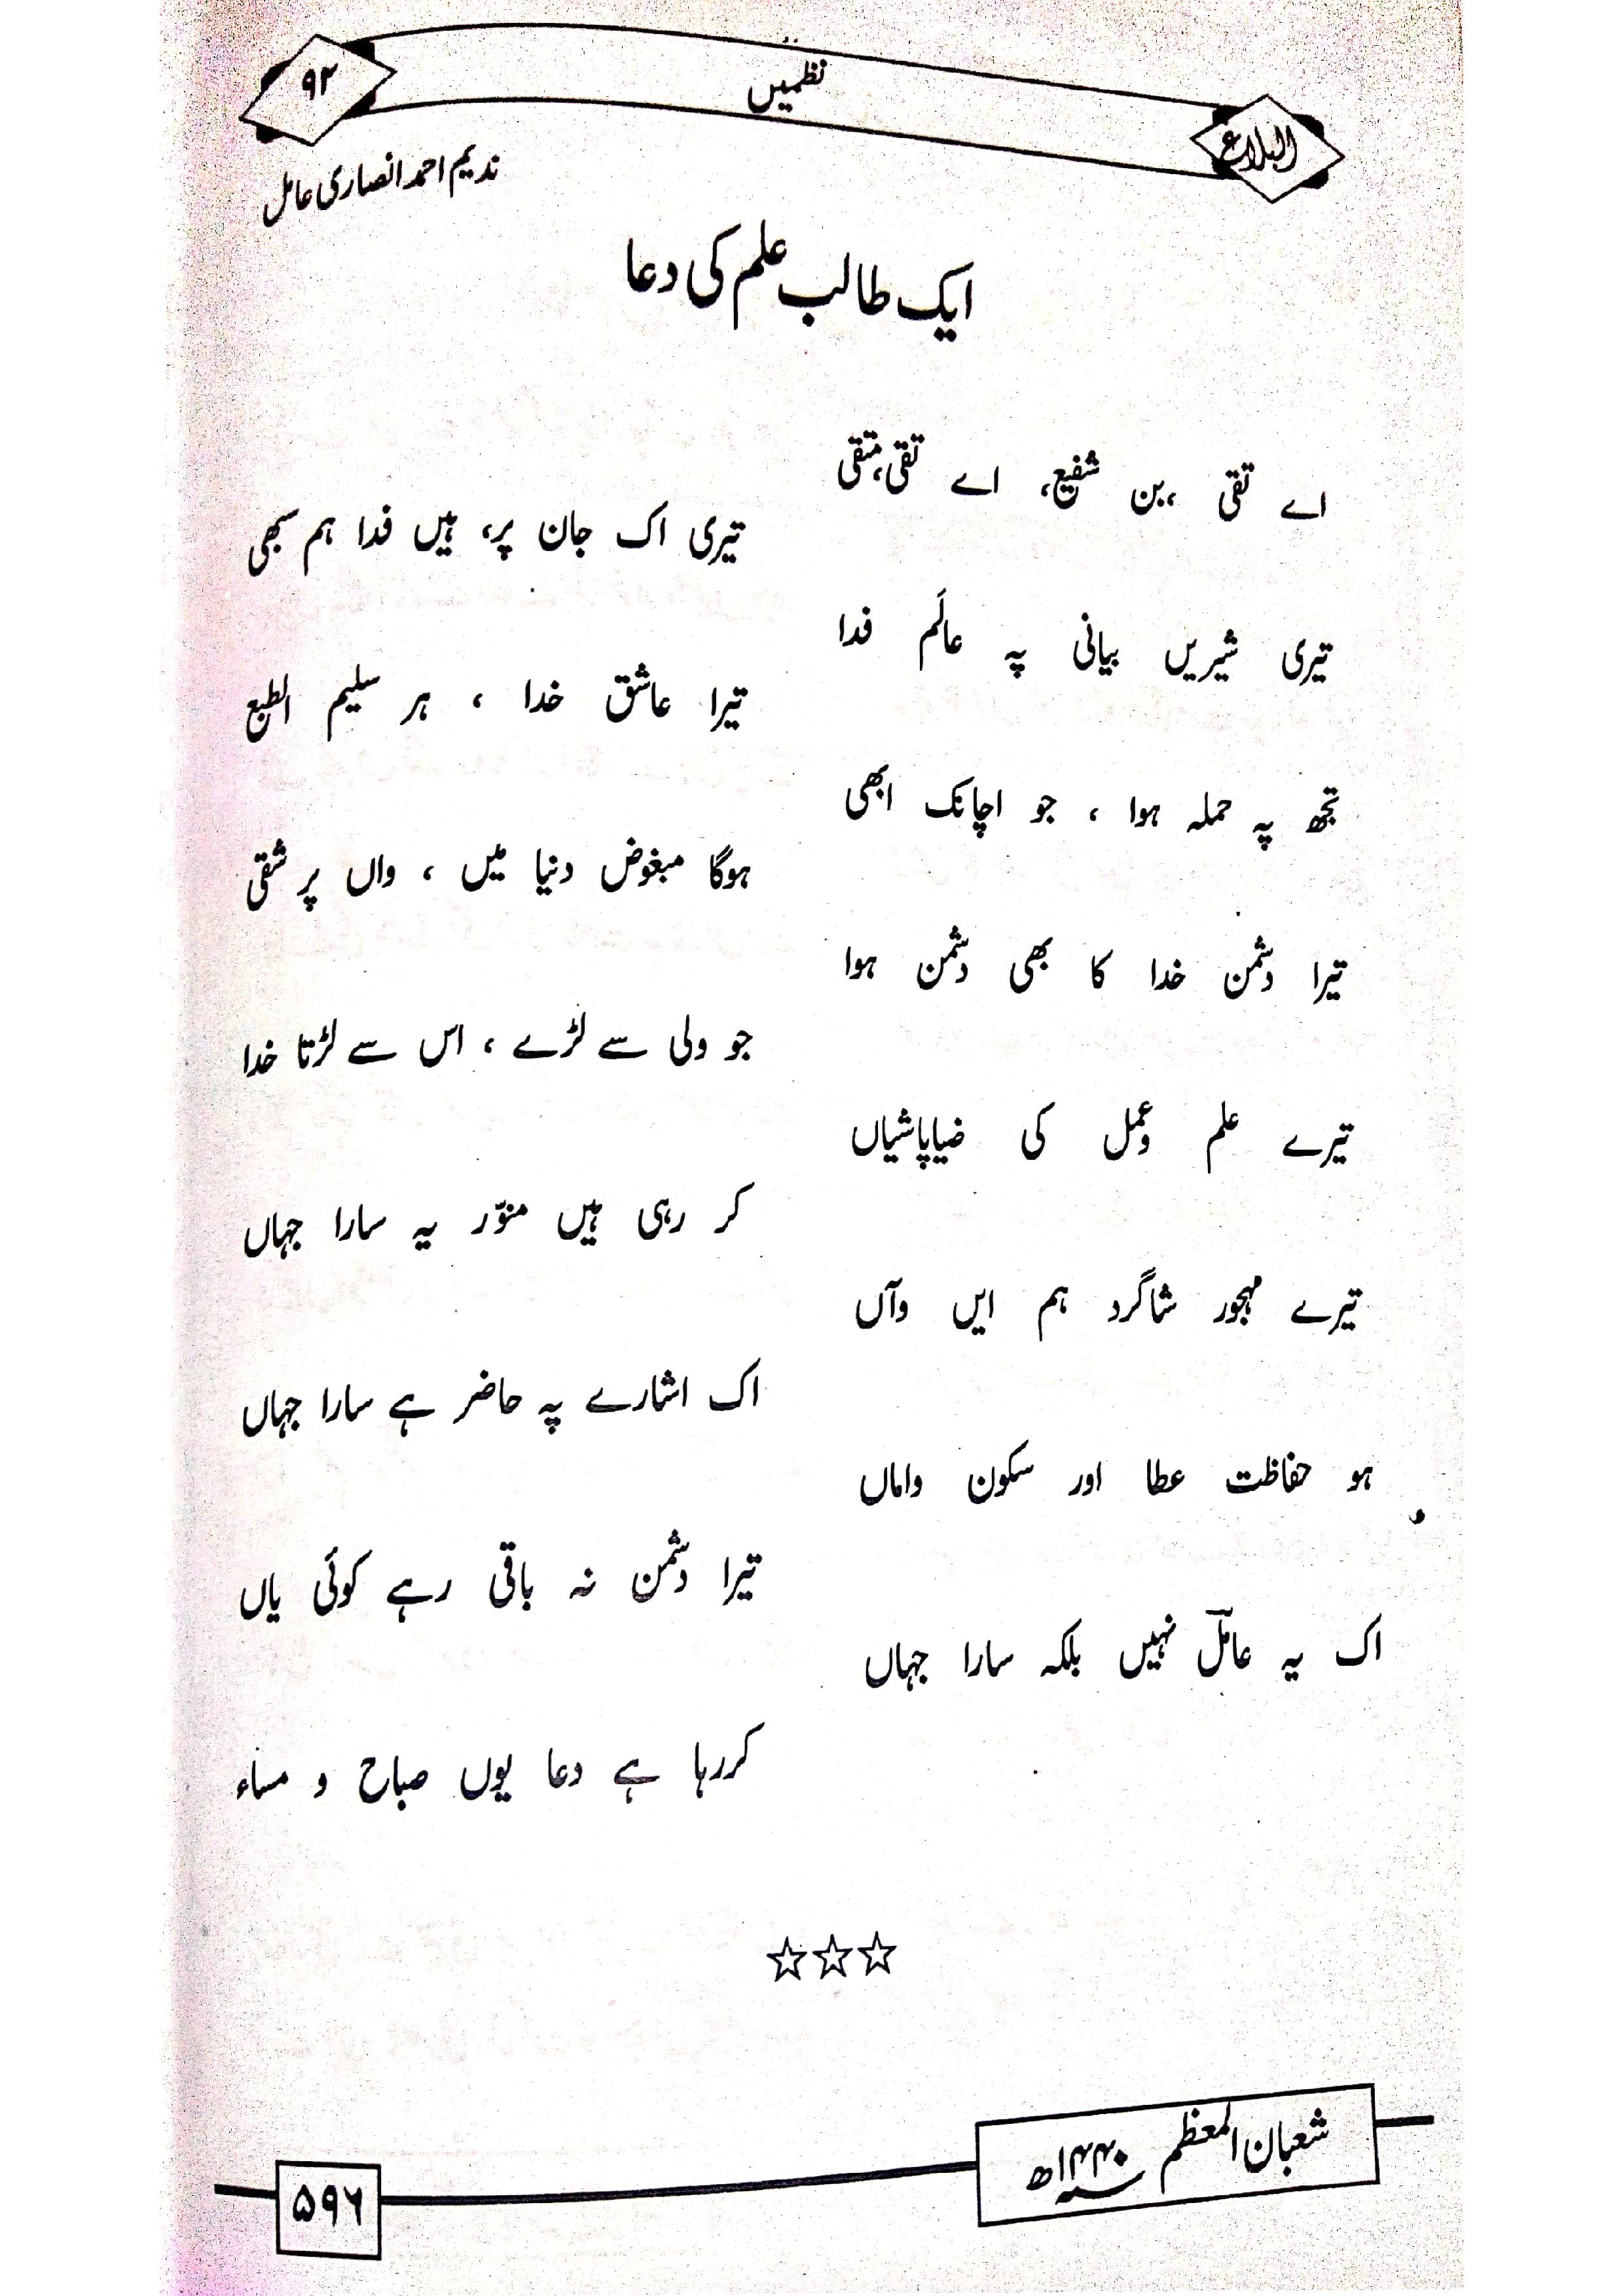 البلاغ
نظمیں
۹۲
ندیم احمد انصاری عامل
ایک طالب علم کی دعا
اے تقی ،بن شفیع، اے تقی،متقی
تیری اک جان پر، ہیں فدا ہم سبھی
تیری شیریں بیانی پہ عالَم فدا
تیرا عاشق خدا ، ہر سلیم الطبع
تجھ پہ حملہ ہوا ، جو اچانک ابھی
ہوگا مبغوض دنیا میں ، واں پر شقی
تیرا دشمن خدا کا بھی دشمن ہوا
جو ولی سے لڑے ، اس سے لڑتا خدا
تیرے علم وعمل کی ضیاپاشیاں
کر رہی ہیں منوّر یہ سارا جہاں
تیرے مہجور شاگرد ہم ایں وآں
اک اشارے پہ حاضر ہے سارا جہاں
ہو حفاظت عطا اور سکون واماں
تیرا دشمن نہ باقی رہے کوئی یاں
اک یہ عاملؔ نہیں بلکہ سارا جہاں
کررہا ہے دعا یوں صباح و مساء
☆☆☆
شعبان المعظم ۱۴۴۰ھ
۵۹۶